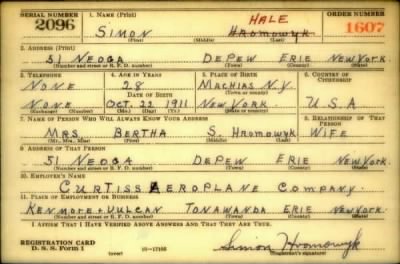 SERIAL NUMBER 1. NAME (Print) ORDER NUMBER
2096 SIMON HROMOWYK HALE 1607
(First) (Middle) (Last)
2. ADDRESS (Print)
51 NEOGA DEPEW ERIE NEW YORK
(Number and street or R. F. D. number) (Town) (County) (State)
3. TELEPHONE 4. AGE IN YEARS 5. PLACE OF BIRTH 6. COUNTRY OF CITIZENSHIP
NONE 28 MACHIAS N.Y.
DATE OF BIRTH (Town or county)
NONE OCT. 22 1911 NEW YORK U.S.A
(Mo.) (Day) (Yr.) (State or country)
7. NAME OF PERSON WHO WILL ALWAYS KNOW YOUR ADDRESS 8. RELATIONSHIP OF THAT PERSON
MRS. BERTHA S. HROMOWYK WIFE
(Mr., Mrs., Miss) (First) (Middle) (Last)
9. ADDRESS OF THAT PERSON
51 NEOGA DEPEW ERIE NEW YORK
(Number and street or R. F. D. number) (Town) (County) (State)
10. EMPLOYER'S NAME
CURTISS AEROPLANE COMPANY
11. PLACE OF EMPLOYMENT OR BUSINESS
KENMORE + VULCAN TONAWANDA ERIE NEW YORK
(Number and street or R. F. D. number) (Town) (County) (State)
I AFFIRM THAT I HAVE VERIFIED ABOVE ANSWERS AND THAT THEY ARE TRUE.
REGISTRATION CARD
D. S. S. FORM 1 (over) 16—17105 Simon Hromowyk
(Registrant's signature)